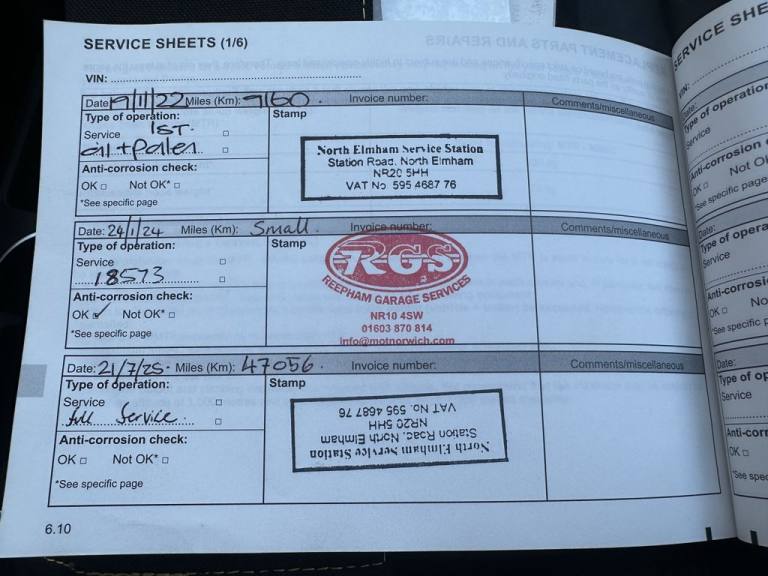 SERVICE SHEETS (1/6)
VIN:
Date: 19/11/22 Miles (Km): 9160. Invoice number: Comments/miscellaneous
Type of operation: Stamp
1ST.
Service
oil + pollen
Anti-corrosion check:
OK Not OK*
*See specific page
North Elmham Service Station
Station Road, North Elmham
NR20 5HH
VAT No. 595 4687 76
Date: 24/1/24 Miles (Km): Small Invoice number: Comments/miscellaneous
Type of operation: Stamp
Service
18573
Anti-corrosion check:
OK ✓ Not OK*
*See specific page
RGS
REEPHAM GARAGE SERVICES
NR10 4SW
01603 870 814
info@motnorwich.com
Date: 21/7/25. Miles (Km): 47056. Invoice number: Comments/miscellaneous
Type of operation: Stamp
Service
full Service.
Anti-corrosion check:
OK Not OK*
*See specific page
North Elmham Service Station
Station Road, North Elmham
NR20 5HH
VAT No. 595 4687 76
6.10
SERVICE SHE
VIN:
Date:
Type of operation
Service
Anti-corrosion
OK Not
*See specific page
Date:
Type of opera
Service
Anti-corrosi
OK No
*See specific
Date:
Type of op
Service
Anti-corr
OK
*See spe